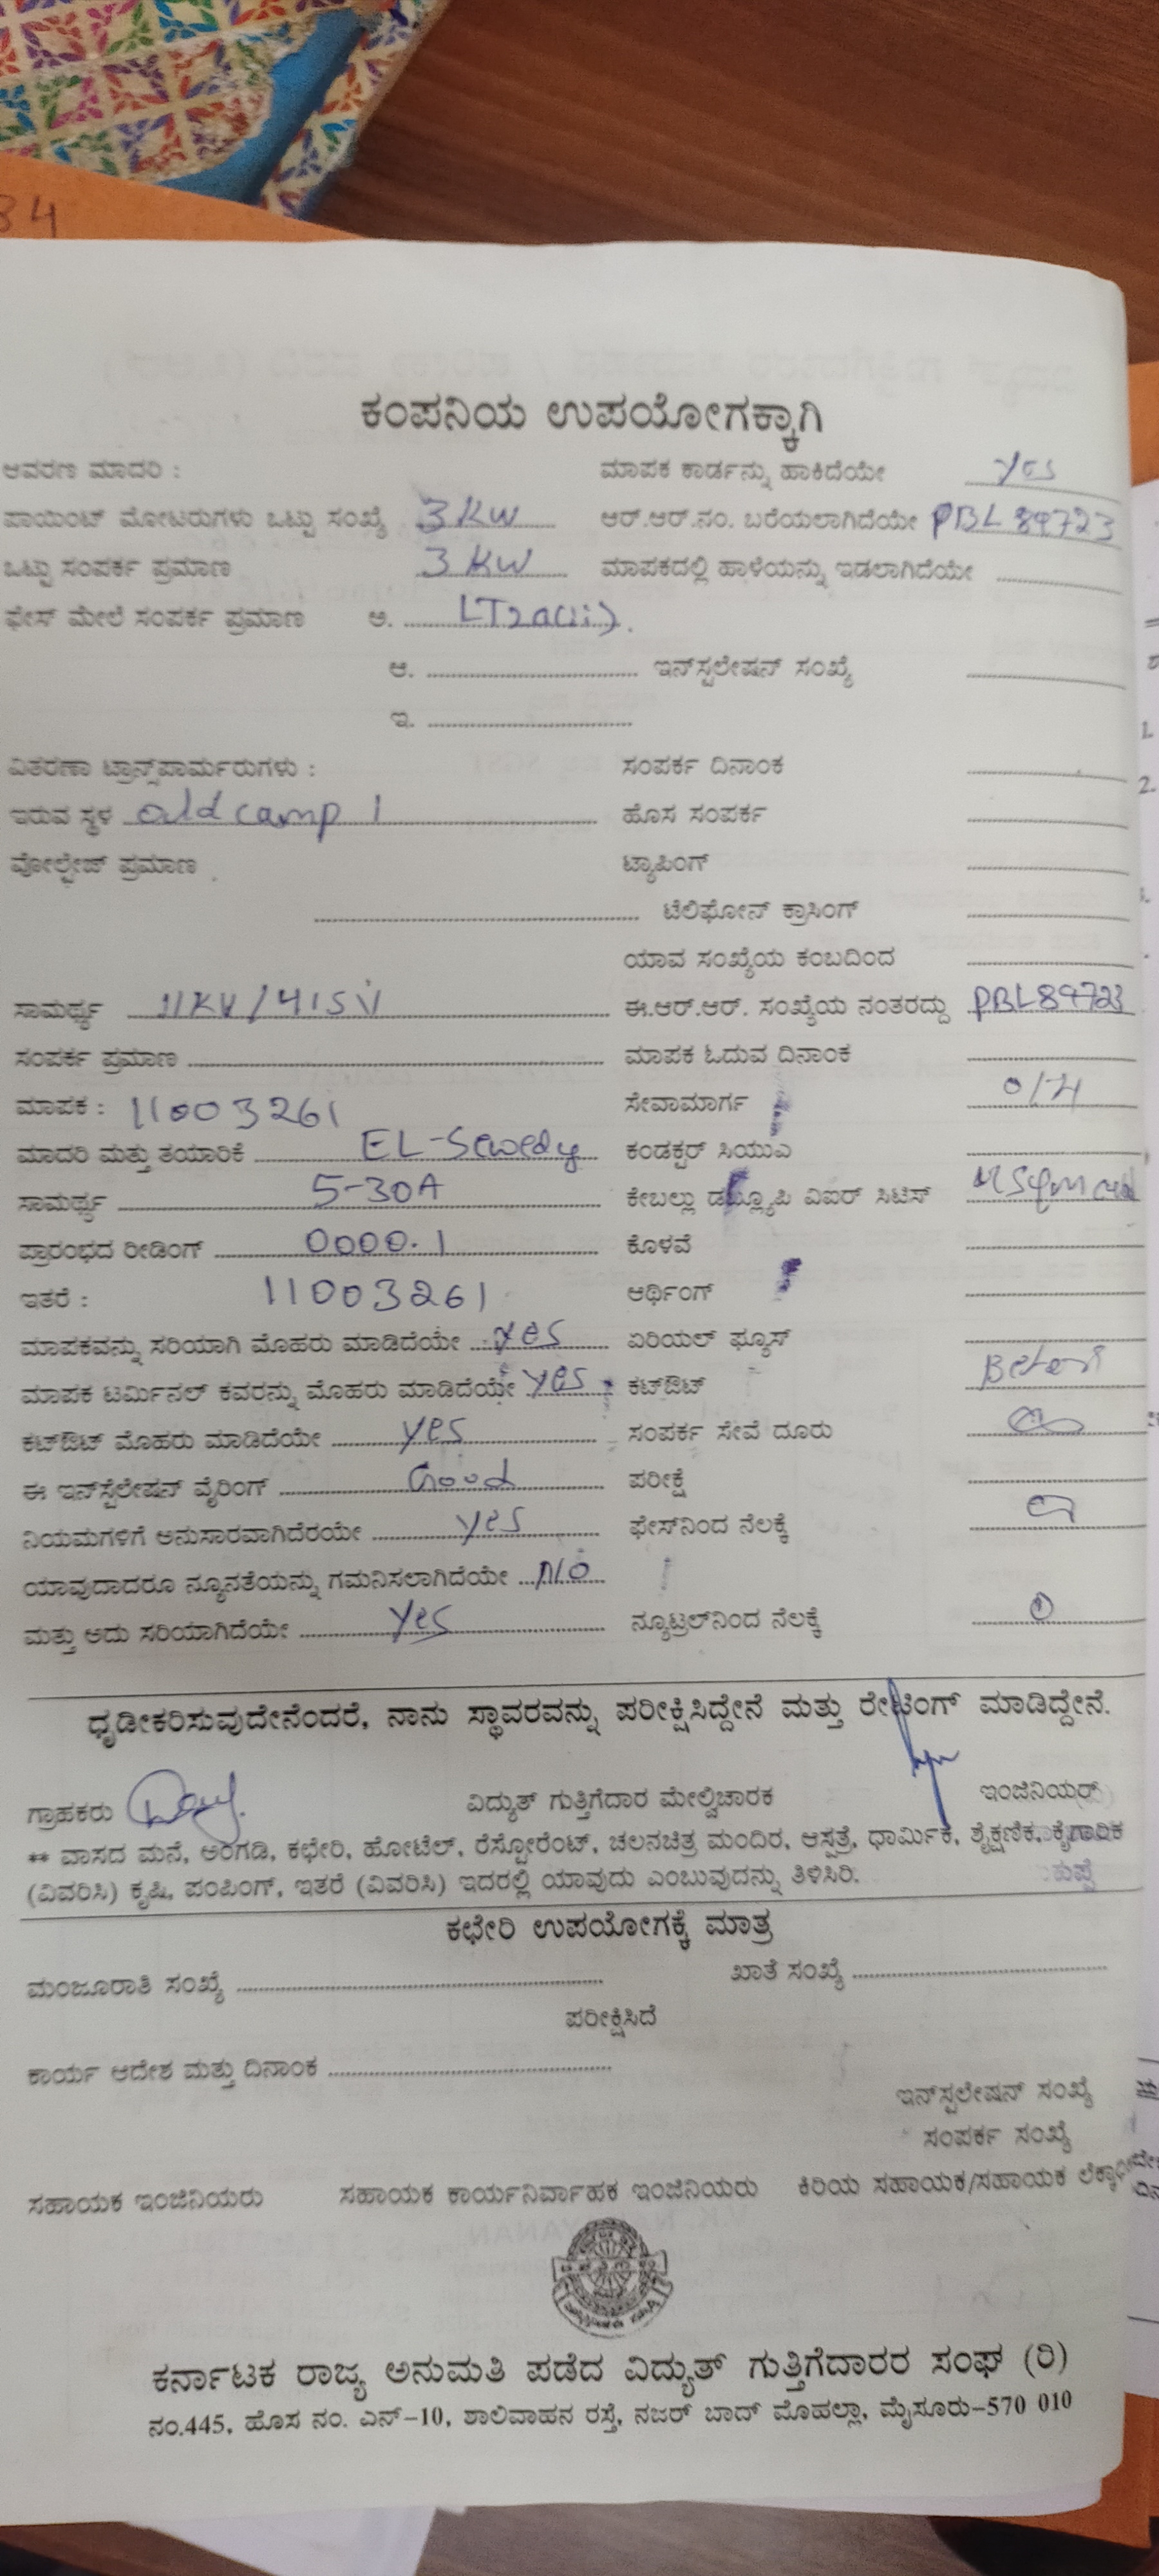 34
ಕಂಪನಿಯ ಉಪಯೋಗಕ್ಕಾಗಿ
ಆವರಣ ಮಾದರಿ : ಮಾಪಕ ಕಾರ್ಡನ್ನು ಹಾಕಿದೆಯೇ yes
ಪಾಯಿಂಟ್ ಮೋಟರುಗಳು ಒಟ್ಟು ಸಂಖ್ಯೆ 3 KW ಆರ್.ಆರ್.ನಂ. ಬರೆಯಲಾಗಿದೆಯೇ PBL89723
ಒಟ್ಟು ಸಂಪರ್ಕ ಪ್ರಮಾಣ 3 KW ಮಾಪಕದಲ್ಲಿ ಹಾಳೆಯನ್ನು ಇಡಲಾಗಿದೆಯೇ
ಫೇಸ್ ಮೇಲೆ ಸಂಪರ್ಕ ಪ್ರಮಾಣ ಅ. LT2a(ii)
ಆ. ಇನ್‌ಸ್ಟಲೇಷನ್ ಸಂಖ್ಯೆ
ಇ.
ವಿತರಣಾ ಟ್ರಾನ್ಸ್‌ಪಾರ್ಮರುಗಳು : ಸಂಪರ್ಕ ದಿನಾಂಕ
ಇರುವ ಸ್ಥಳ old camp 1 ಹೊಸ ಸಂಪರ್ಕ
ವೋಲ್ಟೇಜ್ ಪ್ರಮಾಣ ಟ್ಯಾಪಿಂಗ್
ಟೆಲಿಫೋನ್ ಕ್ರಾಸಿಂಗ್
ಯಾವ ಸಂಖ್ಯೆಯ ಕಂಬದಿಂದ
ಸಾಮರ್ಥ್ಯ 11KV/415V ಈ.ಆರ್.ಆರ್. ಸಂಖ್ಯೆಯ ನಂತರದ್ದು PBL89723
ಸಂಪರ್ಕ ಪ್ರಮಾಣ ಮಾಪಕ ಓದುವ ದಿನಾಂಕ
ಮಾಪಕ : 11003261 ಸೇವಾಮಾರ್ಗ O/H
ಮಾದರಿ ಮತ್ತು ತಯಾರಿಕೆ EL-Sewedy ಕಂಡಕ್ಟರ್ ಸಿಯುಎ
ಸಾಮರ್ಥ್ಯ 5-30A ಕೇಬಲ್ಲು ಡಬ್ಲ್ಯೂಪಿ ವಿಐರ್ ಸಿಟಿಸ್
ಪ್ರಾರಂಭದ ರೀಡಿಂಗ್ 0000.1 ಕೊಳವೆ
ಇತರೆ : 11003261 ಆರ್ಥಿಂಗ್
ಮಾಪಕವನ್ನು ಸರಿಯಾಗಿ ಮೊಹರು ಮಾಡಿದೆಯೇ yes ಏರಿಯಲ್ ಫ್ಯೂಸ್
ಮಾಪಕ ಟರ್ಮಿನಲ್ ಕವರನ್ನು ಮೊಹರು ಮಾಡಿದೆಯೇ yes ಕಟ್‌ಔಟ್
ಕಟ್‌ಔಟ್ ಮೊಹರು ಮಾಡಿದೆಯೇ yes ಸಂಪರ್ಕ ಸೇವೆ ದೂರು
ಈ ಇನ್‌ಸ್ಟೆಲೇಷನ್ ವೈರಿಂಗ್ Good ಪರೀಕ್ಷೆ
ನಿಯಮಗಳಿಗೆ ಅನುಸಾರವಾಗಿದೆರಯೇ yes ಫೇಸ್‌ನಿಂದ ನೆಲಕ್ಕೆ
ಯಾವುದಾದರೂ ನ್ಯೂನತೆಯನ್ನು ಗಮನಿಸಲಾಗಿದೆಯೇ NO
ಮತ್ತು ಅದು ಸರಿಯಾಗಿದೆಯೇ yes ನ್ಯೂಟ್ರಲ್‌ನಿಂದ ನೆಲಕ್ಕೆ
ಧೃಡೀಕರಿಸುವುದೇನೆಂದರೆ, ನಾನು ಸ್ಥಾವರವನ್ನು ಪರೀಕ್ಷಿಸಿದ್ದೇನೆ ಮತ್ತು ರೇಟಿಂಗ್ ಮಾಡಿದ್ದೇನೆ.
ಗ್ರಾಹಕರು ವಿದ್ಯುತ್ ಗುತ್ತಿಗೆದಾರ ಮೇಲ್ವಿಚಾರಕ ಇಂಜಿನಿಯರ್
** ವಾಸದ ಮನೆ, ಅಂಗಡಿ, ಕಛೇರಿ, ಹೋಟೆಲ್, ರೆಸ್ಟೋರೆಂಟ್, ಚಲನಚಿತ್ರ ಮಂದಿರ, ಆಸ್ಪತ್ರೆ, ಧಾರ್ಮಿಕ, ಶೈಕ್ಷಣಿಕ, ಕೈಗಾರಿಕ
(ವಿವರಿಸಿ) ಕೃಷಿ, ಪಂಪಿಂಗ್, ಇತರೆ (ವಿವರಿಸಿ) ಇದರಲ್ಲಿ ಯಾವುದು ಎಂಬುವುದನ್ನು ತಿಳಿಸಿರಿ.
ಕಛೇರಿ ಉಪಯೋಗಕ್ಕೆ ಮಾತ್ರ
ಮಂಜೂರಾತಿ ಸಂಖ್ಯೆ ಖಾತೆ ಸಂಖ್ಯೆ
ಪರೀಕ್ಷಿಸಿದೆ
ಕಾರ್ಯ ಆದೇಶ ಮತ್ತು ದಿನಾಂಕ
ಇನ್‌ಸ್ಟಲೇಷನ್ ಸಂಖ್ಯೆ
ಸಂಪರ್ಕ ಸಂಖ್ಯೆ
ಸಹಾಯಕ ಇಂಜಿನಿಯರು ಸಹಾಯಕ ಕಾರ್ಯನಿರ್ವಾಹಕ ಇಂಜಿನಿಯರು ಕಿರಿಯ ಸಹಾಯಕ/ಸಹಾಯಕ
ಕರ್ನಾಟಕ ರಾಜ್ಯ ಅನುಮತಿ ಪಡೆದ ವಿದ್ಯುತ್ ಗುತ್ತಿಗೆದಾರರ ಸಂಘ (ರಿ)
ನಂ.445, ಹೊಸ ನಂ. ಎನ್-10, ಶಾಲಿವಾಹನ ರಸ್ತೆ, ನಜರ್ ಬಾದ್ ಮೊಹಲ್ಲಾ, ಮೈಸೂರು-570 010